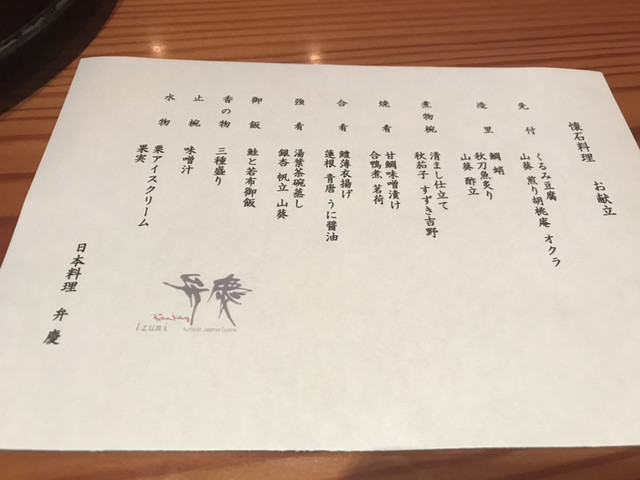 懐石料理　お献立
先付　くるみ豆腐
山葵 煎り胡桃庵 オクラ
造里　鯛 蛸
秋刀魚炙り
山葵 酢立
煮物椀　清まし仕立て
秋茄子 すずき吉野
焼肴　甘鯛味噌漬け
合鴨煮 茗荷
合肴　鱧薄衣揚げ
蓮根 青唐 うに醤油
強肴　湯葉茶碗蒸し
銀杏 帆立 山葵
御飯　鮭と若布御飯
香の物　三種盛り
止椀　味噌汁
水物　栗アイスクリーム
果実
弁慶
Ben Kay
izumi
Authentic Japanese Cuisine
日本料理　弁慶